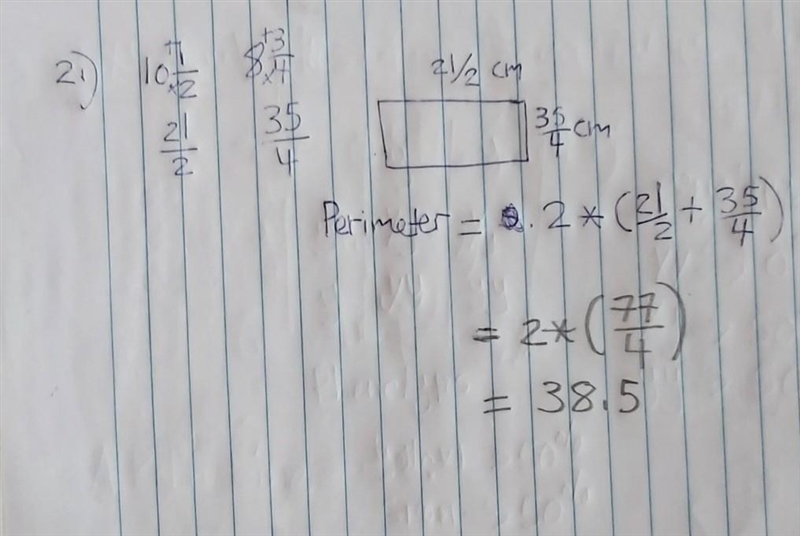 2.) 10 1/2 8 3/4
21/2 35/4
21/2 cm
35/4 cm
Perimeter = . 2 * (21/2 + 35/4)
= 2 * (77/4)
= 38.5